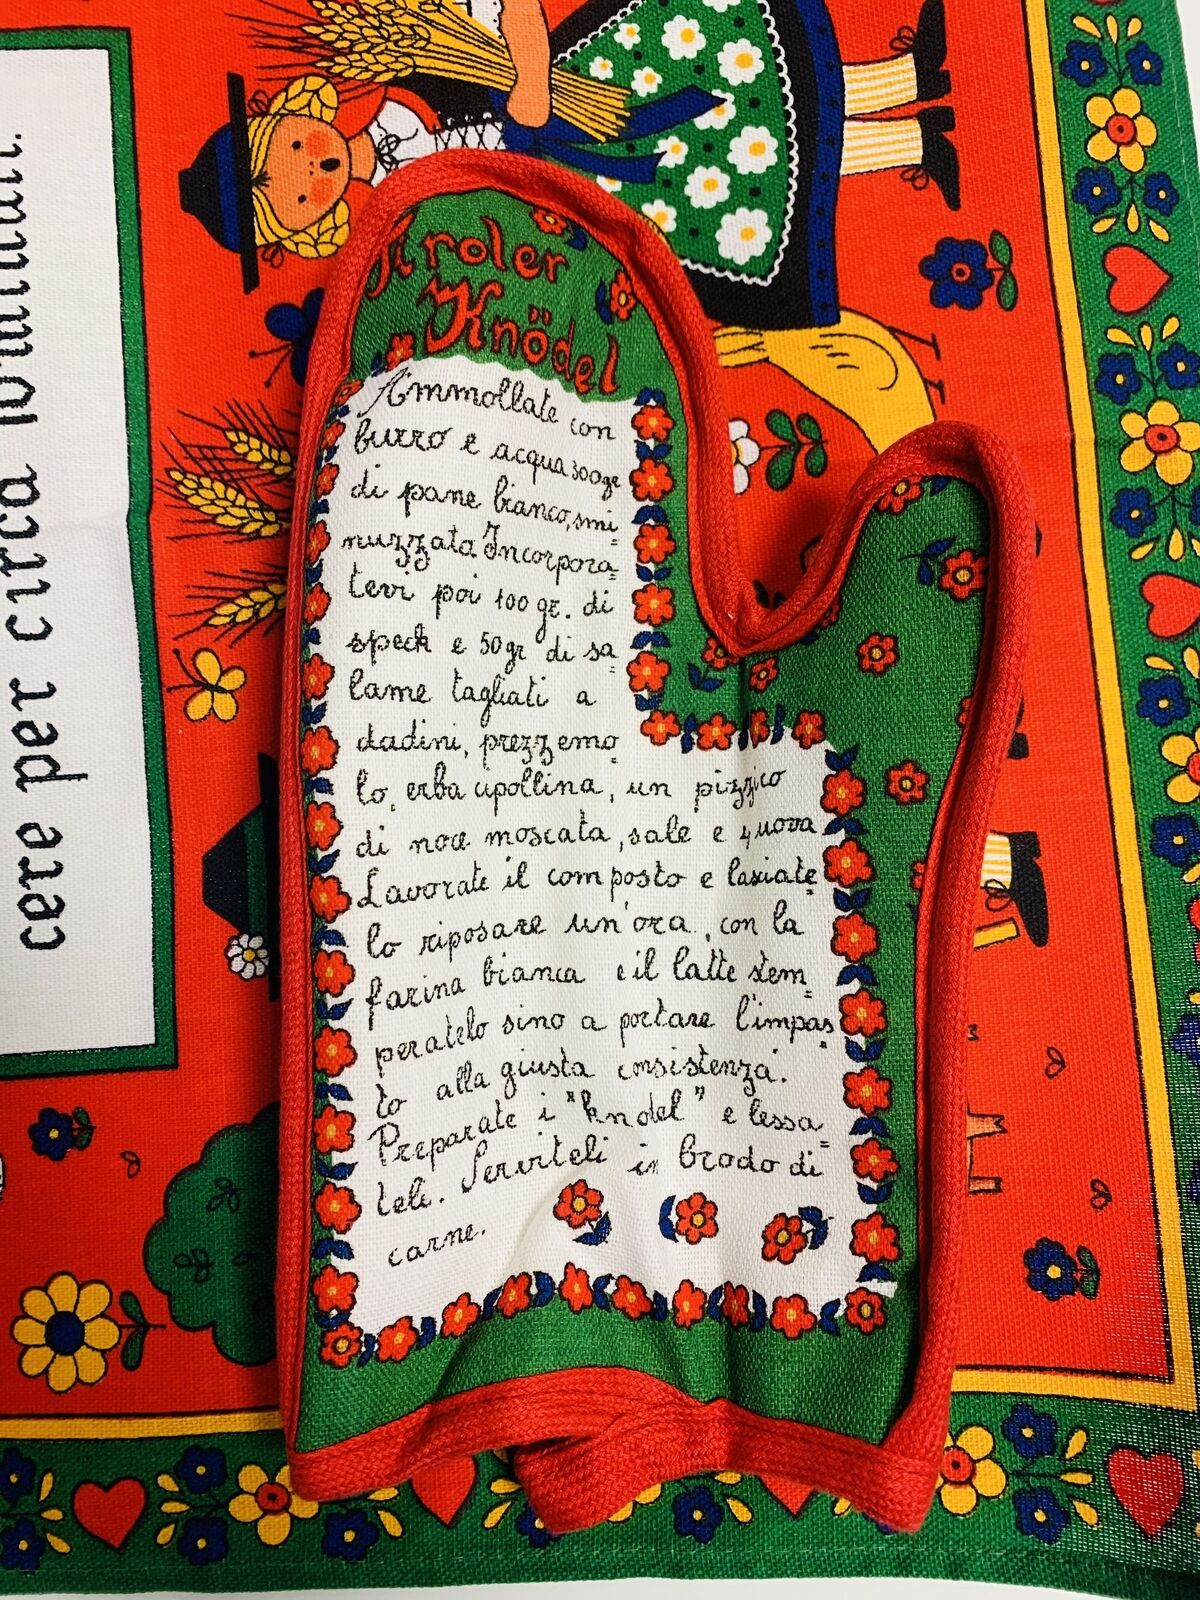 Tiroler
Knödel
Ammollate con
burro e acqua 300gr
di pane bianco, smi=
nuzzata Incorpora=
tevi poi 100 gr. di
speck e 50gr di sa=
lame tagliati a
dadini, prezzemo=
lo, erba cipollina, un pizzico
di noce moscata, sale e 4 uova
Lavorate il composto e lasciate=
lo riposare un'ora, con la
farina bianca e il latte stem=
peratelo sino a portare l'impas=
to alla giusta consistenza.
Preparate i "knodel" e lessa=
teli. Serviteli in brodo di
carne.
cere per circa 10 minuti.